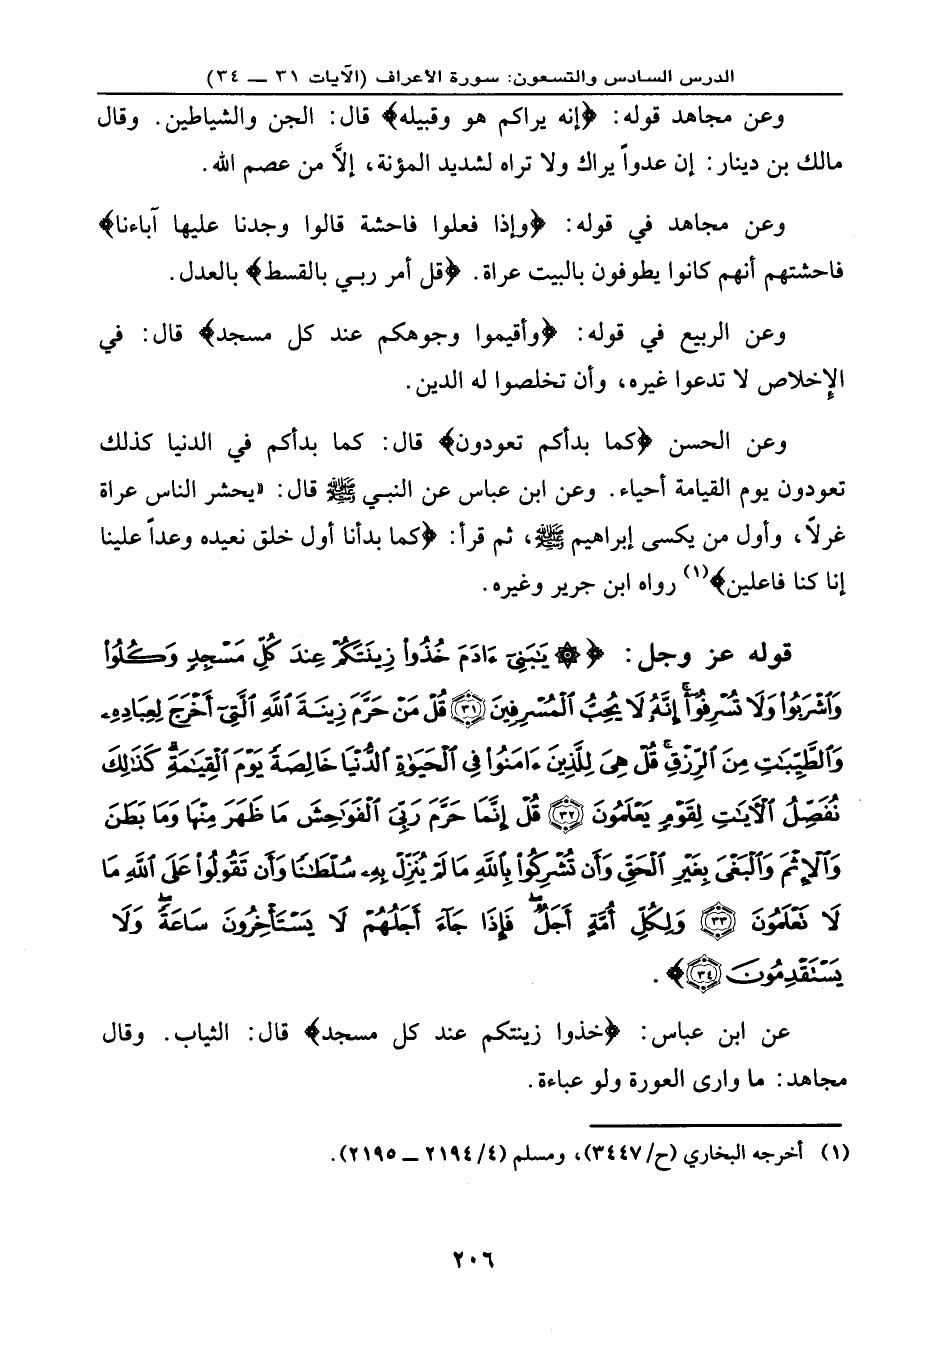 الدرس السادس والتسعون: سورة الأعراف (الآيات ٣١ ــ ٣٤)
وعن مجاهد قوله: ﴿إنه يراكم هو وقبيله﴾ قال: الجن والشياطين. وقال
مالك بن دينار: إن عدواً يراك ولا تراه لشديد المؤنة، إلاَّ من عصم الله.
وعن مجاهد في قوله: ﴿وإذا فعلوا فاحشة قالوا وجدنا عليها آباءنا﴾
فاحشتهم أنهم كانوا يطوفون بالبيت عراة. ﴿قل أمر ربي بالقسط﴾ بالعدل.
وعن الربيع في قوله: ﴿وأقيموا وجوهكم عند كل مسجد﴾ قال: في
الإخلاص لا تدعوا غيره، وأن تخلصوا له الدين.
وعن الحسن ﴿كما بدأكم تعودون﴾ قال: كما بدأكم في الدنيا كذلك
تعودون يوم القيامة أحياء. وعن ابن عباس عن النبي ﷺ قال: «يحشر الناس عراة
غرلاً، وأول من يكسى إبراهيم ﷺ، ثم قرأ: ﴿كما بدأنا أول خلق نعيده وعداً علينا
إنا كنا فاعلين﴾(١) رواه ابن جرير وغيره.
قوله عز وجل: ﴿۞ يَٰبَنِىٓ ءَادَمَ خُذُوا۟ زِينَتَكُمْ عِندَ كُلِّ مَسْجِدٍ وَكُلُوا۟
وَٱشْرَبُوا۟ وَلَا تُسْرِفُوٓا۟ ۚ إِنَّهُۥ لَا يُحِبُّ ٱلْمُسْرِفِينَ ٣١ قُلْ مَنْ حَرَّمَ زِينَةَ ٱللَّهِ ٱلَّتِىٓ أَخْرَجَ لِعِبَادِهِۦ
وَٱلطَّيِّبَٰتِ مِنَ ٱلرِّزْقِ ۚ قُلْ هِىَ لِلَّذِينَ ءَامَنُوا۟ فِى ٱلْحَيَوٰةِ ٱلدُّنْيَا خَالِصَةً يَوْمَ ٱلْقِيَٰمَةِ ۗ كَذَٰلِكَ
نُفَصِّلُ ٱلْءَايَٰتِ لِقَوْمٍ يَعْلَمُونَ ٣٢ قُلْ إِنَّمَا حَرَّمَ رَبِّىَ ٱلْفَوَٰحِشَ مَا ظَهَرَ مِنْهَا وَمَا بَطَنَ
وَٱلْإِثْمَ وَٱلْبَغْىَ بِغَيْرِ ٱلْحَقِّ وَأَن تُشْرِكُوا۟ بِٱللَّهِ مَا لَمْ يُنَزِّلْ بِهِۦ سُلْطَٰنًا وَأَن تَقُولُوا۟ عَلَى ٱللَّهِ مَا
لَا تَعْلَمُونَ ٣٣ وَلِكُلِّ أُمَّةٍ أَجَلٌ ۖ فَإِذَا جَآءَ أَجَلُهُمْ لَا يَسْتَأْخِرُونَ سَاعَةً ۖ وَلَا
يَسْتَقْدِمُونَ ٣٤﴾.
عن ابن عباس: ﴿خذوا زينتكم عند كل مسجد﴾ قال: الثياب. وقال
مجاهد: ما وارى العورة ولو عباءة.
(١) أخرجه البخاري (ح/٣٤٤٧)، ومسلم (٢١٩٤/٤ ــ ٢١٩٥).
٢٠٦